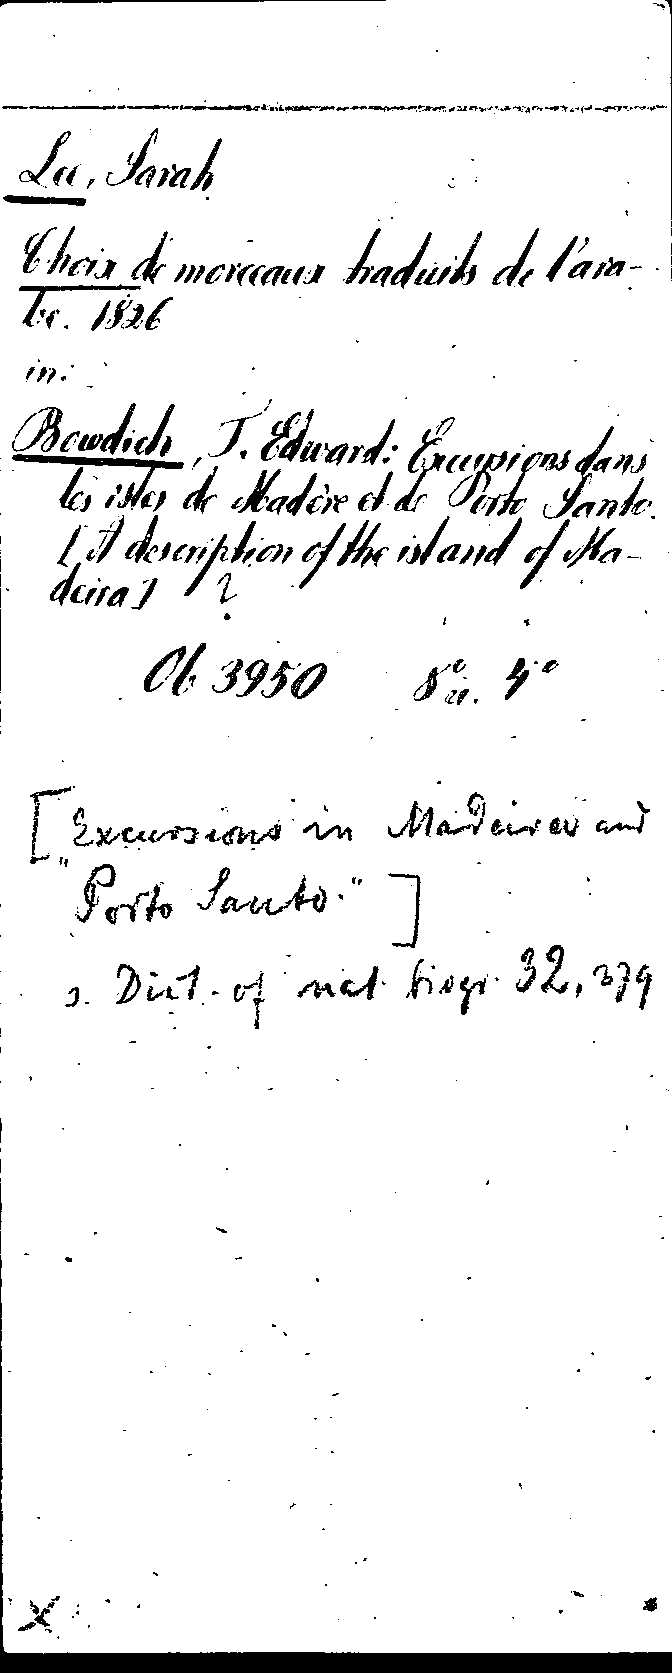 Lee, Sarah
Choix de morceaux traduits de l'ara-
be. 1826
in:
Bowdich, T. Edward: Excursions dans
les isles de Madère et de Porto Santo.
[A description of the island of Ma-
deira] ?
Ob 3950 8° u. 4°
["Excursions in Madeira and
Porto Santo."]
s. Dict. of nat. biogr. 32, 379
X